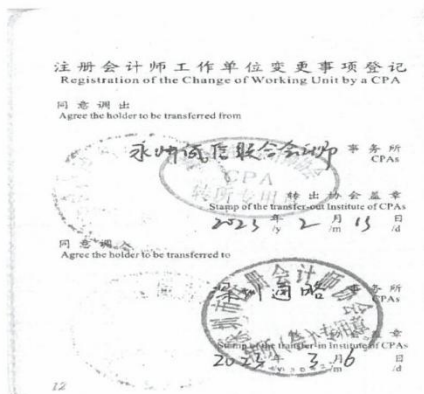 注册会计师工作单位变更事项登记
Registration of the Change of Working Unit by a CPA
同意调出
Agree the holder to be transferred from
永州诚信联合会计师 事务所
CPAs
CPA
转所专用
转出协会盖章
Stamp of the transfer-out Institute of CPAs
2023 年 2 月 13 日
/y /m /d
同意调入
Agree the holder to be transferred to
深圳通略 事务所
CPAs
深圳市注册会计师协会
盖章
Stamp of the transfer-in Institute of CPAs
2023 年 3 月 6 日
/m /d
12